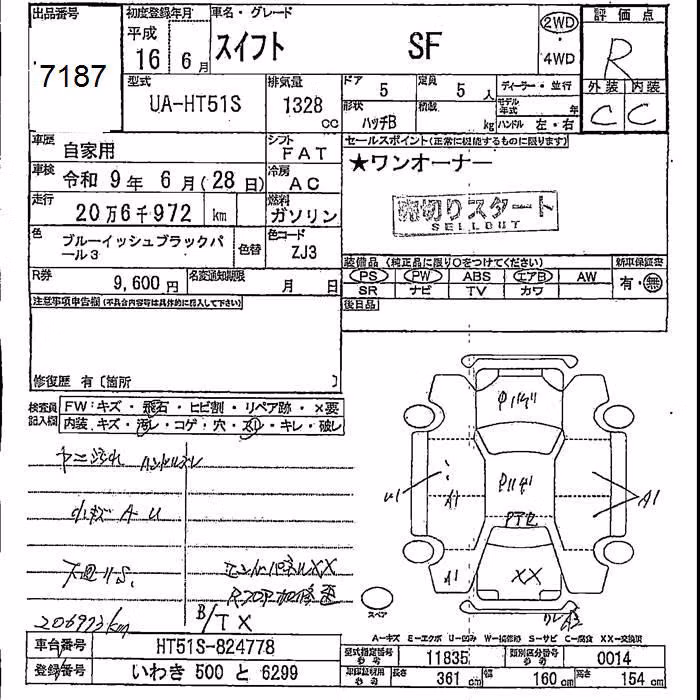 出品番号 初度登録年月 車名・グレード 2WD 評価点
7187 平成 16 6月 スイフト SF 4WD R
型式 排気量 ドア 定員 ディーラー・並行 外装 内装
UA-HT51S 1328 CC 5 5人 モデル年式 年 C C
形状 ハッチB 積載 kg ハンドル 左・右
車歴 自家用 シフト FAT セールスポイント(正常に機能するものに限ります)
車検 令和 9年 6月(28日) 冷房 AC ★ワンオーナー
走行 20万6千972 km 燃料 ガソリン 売切りスタート
SELLOUT
色 ブルーイッシュブラックパール3 色替 色コード ZJ3
装備品(純正品に限り○をつけてください) 新車保証書
R券 9,600円 名変通知期限 月 日 PS PW ABS エアB AW 有・無
SR ナビ TV カワ
注意事項申告欄(不具合内容等は具体的に記入して下さい) 後日品
修復歴 有〔箇所 〕
検査員記入欄 FW:キズ・飛石・ヒビ割・リペア跡・×要
内装 キズ・汚レ・コゲ・穴・スレ・キレ・破レ
ヤニ汚れ ハンドルスレ
小キズ A U
下廻りS.
エンドパネルXX
206973km B/TX
Pハゲ
Pハゲ
U1 A1 A1
A1 XX
スペア
A-キズ E-エクボ U-凹み W-補修跡 S-サビ C-腐食 XX-交換済
車台番号 HT51S-824778 型式指定番号 11835 類別区分番号 0014
登録番号 いわき 500 と 6299 長さ 361 cm 幅 160 cm 高さ 154 cm